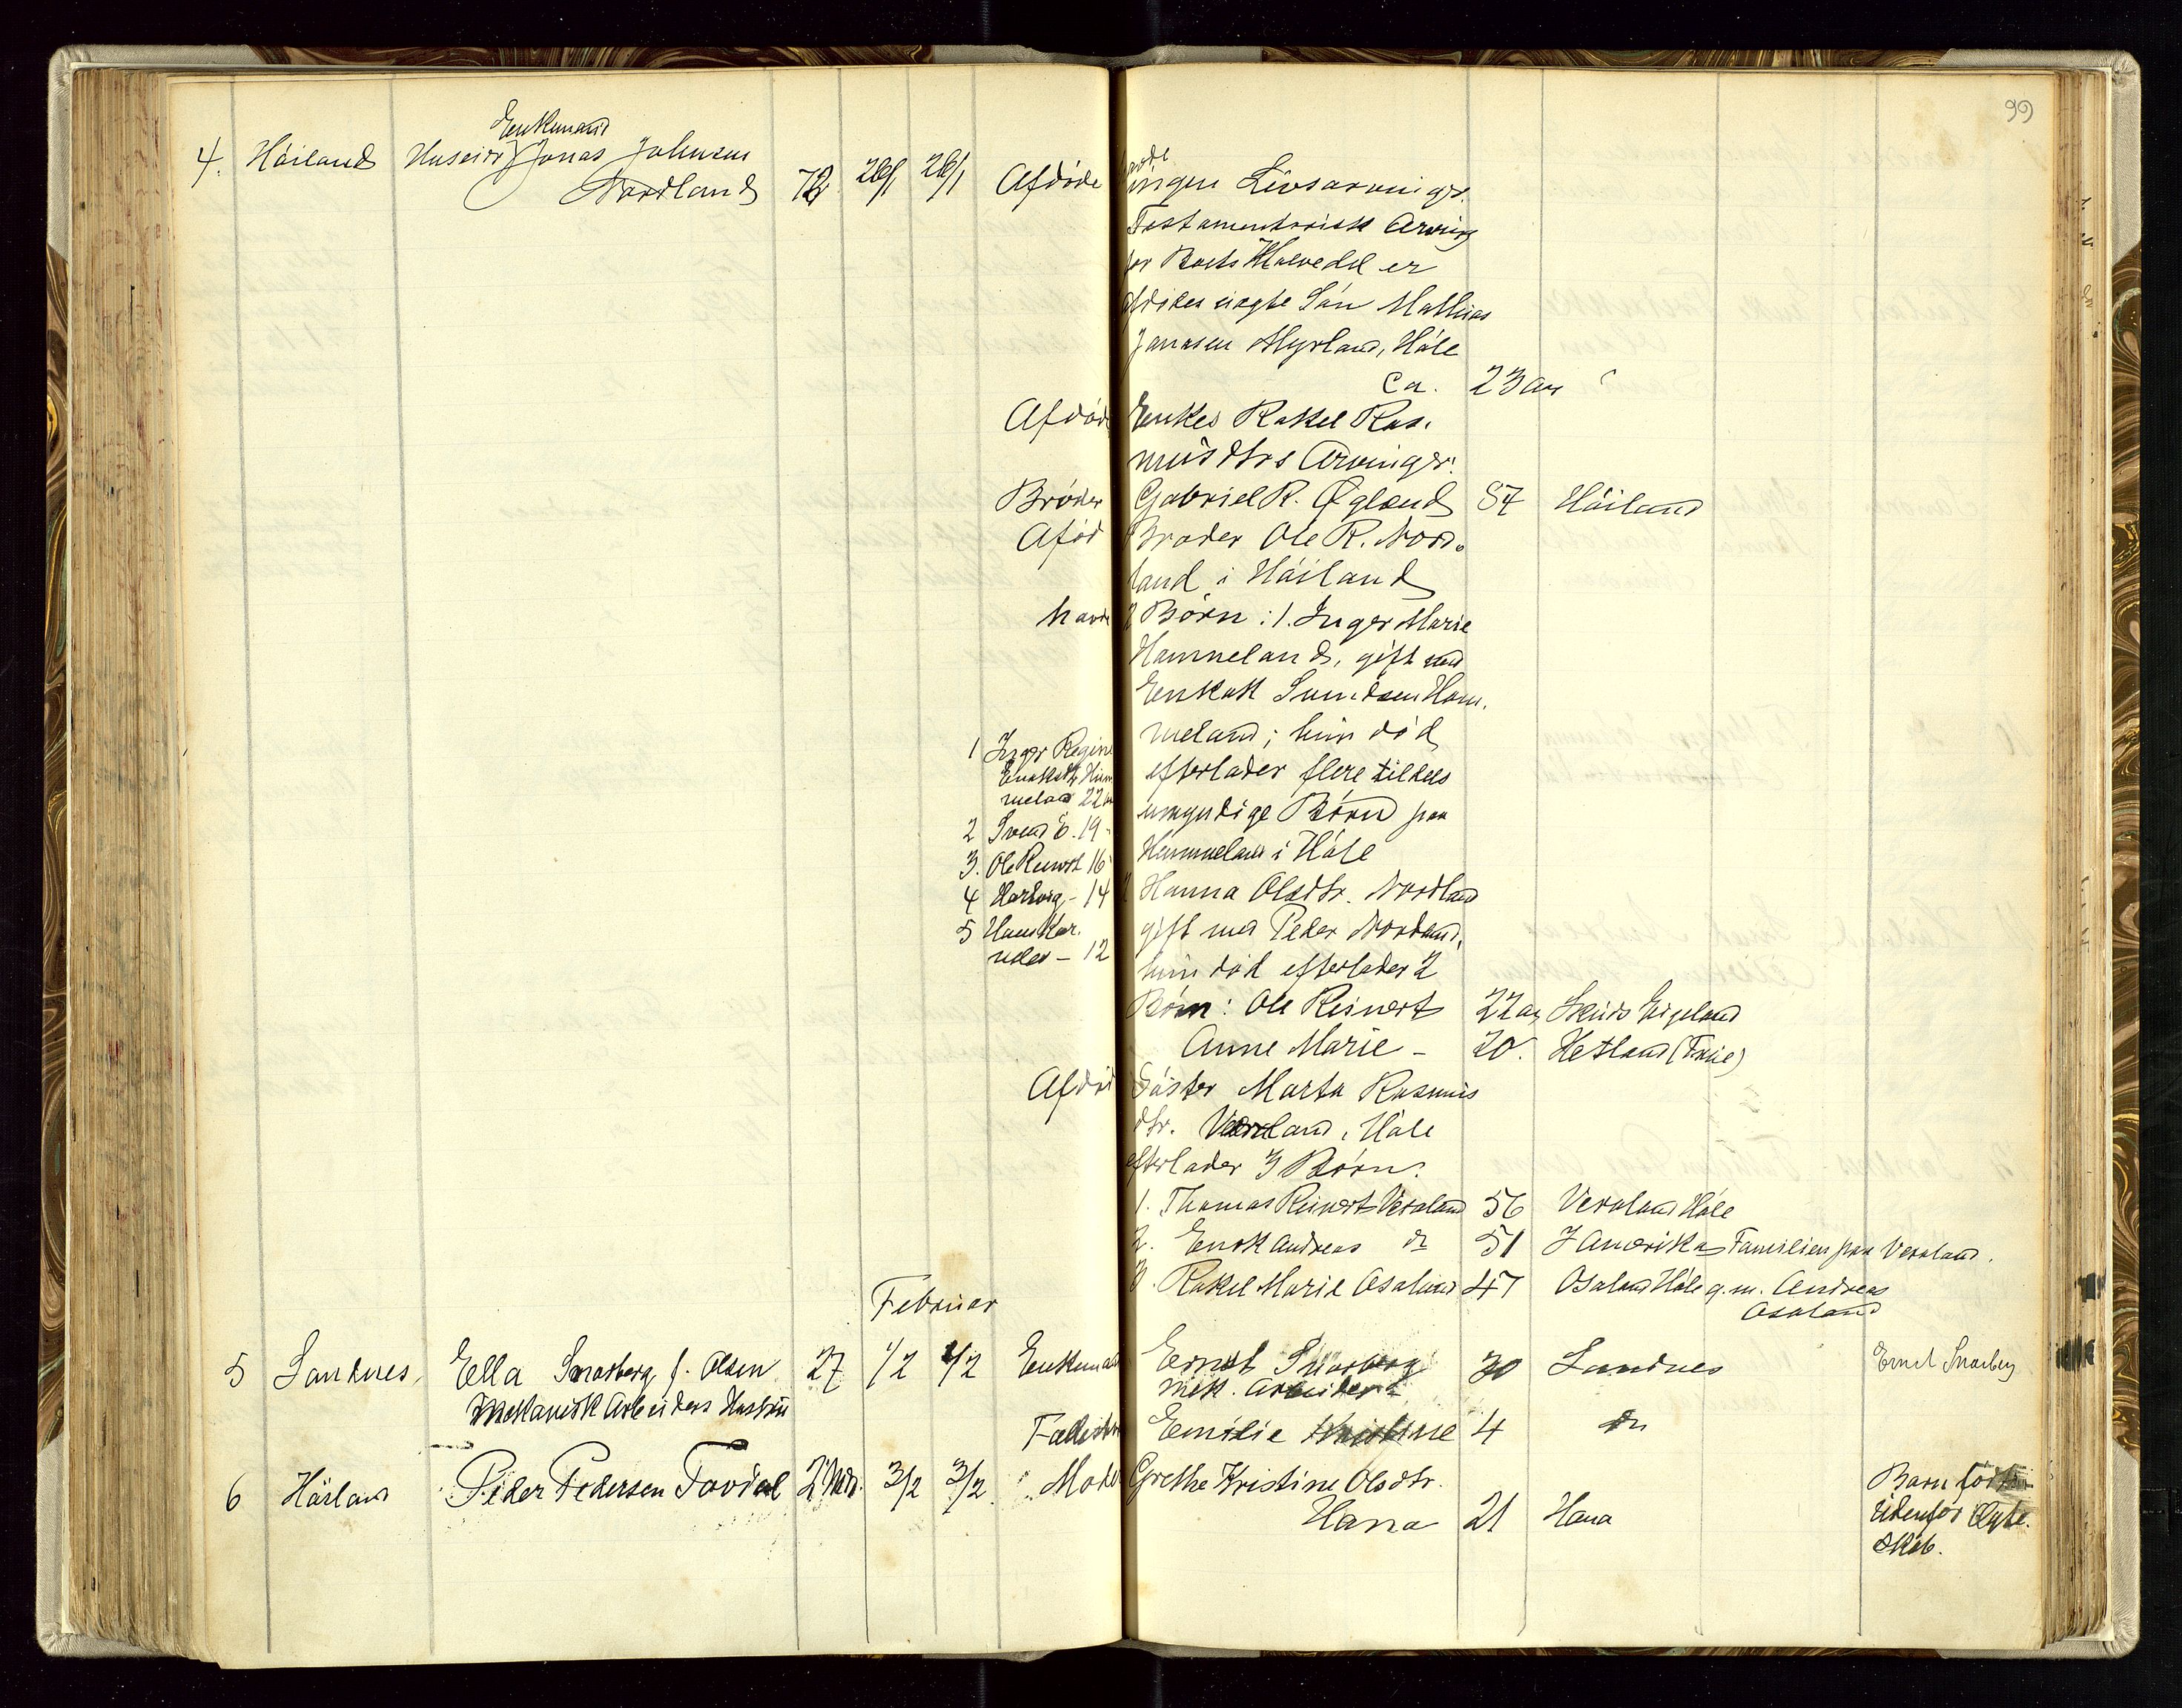 99
Enkemand
4. Höiland Huseier Jonas Johnsen
Nordland 72 26/1 26/1 Afdöde havde
ingen Livsarvinger.
Testamentarisk Arving
for Boets Halvedel er
afdödes uægte Sön Mathias
Jonasen Myrland, Höle
Ca. 23 aar
Afdöde Enkes Rakel Ras.
musdtrs Arvinger:
Bröder Gabriel R. Øgland 87 Höiland
Afdöd Broder Ole R. Nord.
land i Höiland
havde 2 Börn: 1. Inger Marie
Hammeland, gift med
Enkok Svendsen Ham.
meland; hun död
efterlader flere tildels
umyndige Börn paa
Hammeland i Höle
1 Inger Regine
Enoksdtr Ham
meland 22 aar
2 Svend E. 19 -
3. Ole Reinert 16
4 Hartvig - 14
5 Hans Kar.
nelius - 12
2 Hanna Olsdtr. Nordland
gift med Peder Nordland,
hun död efterlader 2
Börn: Ole Reinert 22 aar Skeids Eigeland
Anne Marie - 20. Hetland (Fröie)
Afdöd Söster Marta Rasmus
dtr. Veraland, Höle
efterlader 3 Börn.
1. Thomas Reinert Veraland 56 Veraland Höle
2. Enok Andreas do 51 I Amerika Familien paa Veraland.
3. Rakel Marie Osaland 47 Osaland Höle g. m. Andreas
Osaland
Februar
5 Sandnes, Ella Snarberg f. Olsen 27 1/2 4/2 Enkemand Ernst Snarberg 30 Sandnes Ernst Snarberg
Mekanisk Arbeiders Hustru mek. Arbeider
Fællesbarn Emilie Kristine 4 do
6 Höiland Peder Pedersen Tovdal 2 Mdr. 3/2 3/2 Moder Grethe Kristine Olsdtr.
Hana 21 Hana
Barn födt
udenfor Ægte.
skab.